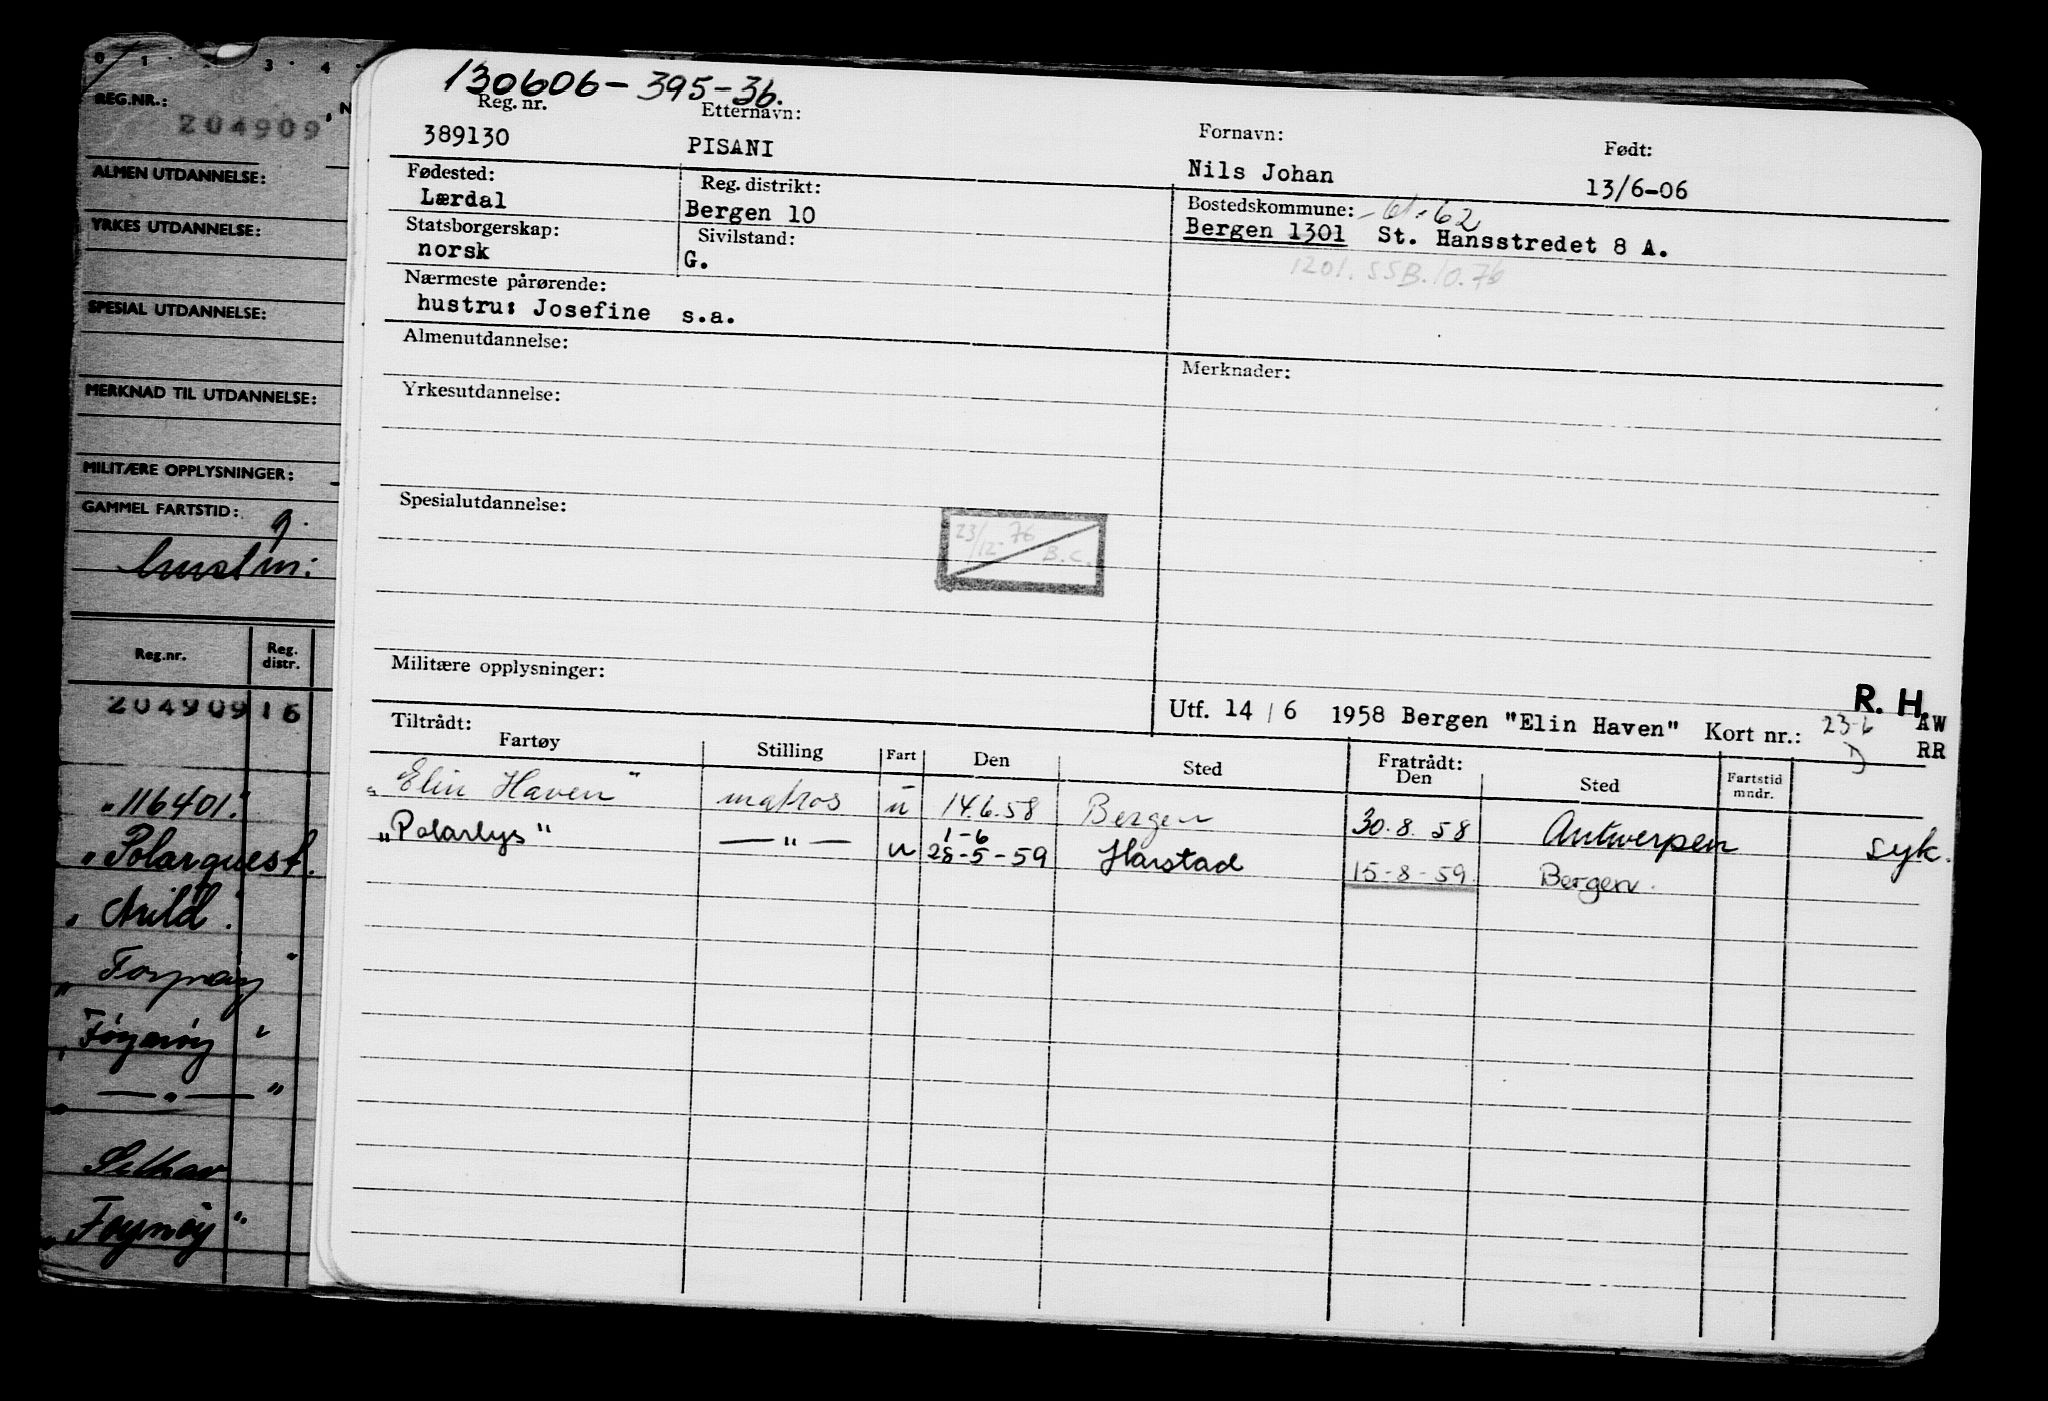 0 1 2 3 4
REG.NR.: 204909 N
ALMEN UTDANNELSE:
YRKES UTDANNELSE:
SPESIAL UTDANNELSE:
MERKNAD TIL UTDANNELSE:
MILITÆRE OPPLYSNINGER:
GAMMEL FARTSTID: 9.
Reg.nr. Reg. distr.
204909 16
"116401."
"Polarquest.
"Arild"
"Føynøy"
"Føynøy"
" — " — "
Selhav
"Føynøy"
130606-395-36.
Reg. nr. Etternavn: Fornavn: Født:
389130 PISANI Nils Johan 13/6-06
Fødested: Reg. distrikt: Bostedskommune: -61-62
Lærdal Bergen 10 Bergen 1301 St. Hansstredet 8 A.
Statsborgerskap: Sivilstand: 1201. SSB.10.76
norsk G.
Nærmeste pårørende:
hustru: Josefine s.a.
Almenutdannelse: Merknader:
Yrkesutdannelse:
Spesialutdannelse:
23/12-76 B.C.
Militære opplysninger:
R. H.
Utf. 14 / 6 1958 Bergen "Elin Haven" Kort nr.: 23-6 AW
D RR
Tiltrådt: Fratrådt:
Fartøy Stilling Fart Den Sted Den Sted Fartstid mndr.
"Elin Haven" matros u 14.6.58 Bergen 30.8.58 Antwerpen syk.
1-6
"Polarlys" — " — u 28-5-59 Harstad 15-8-59. Bergen.